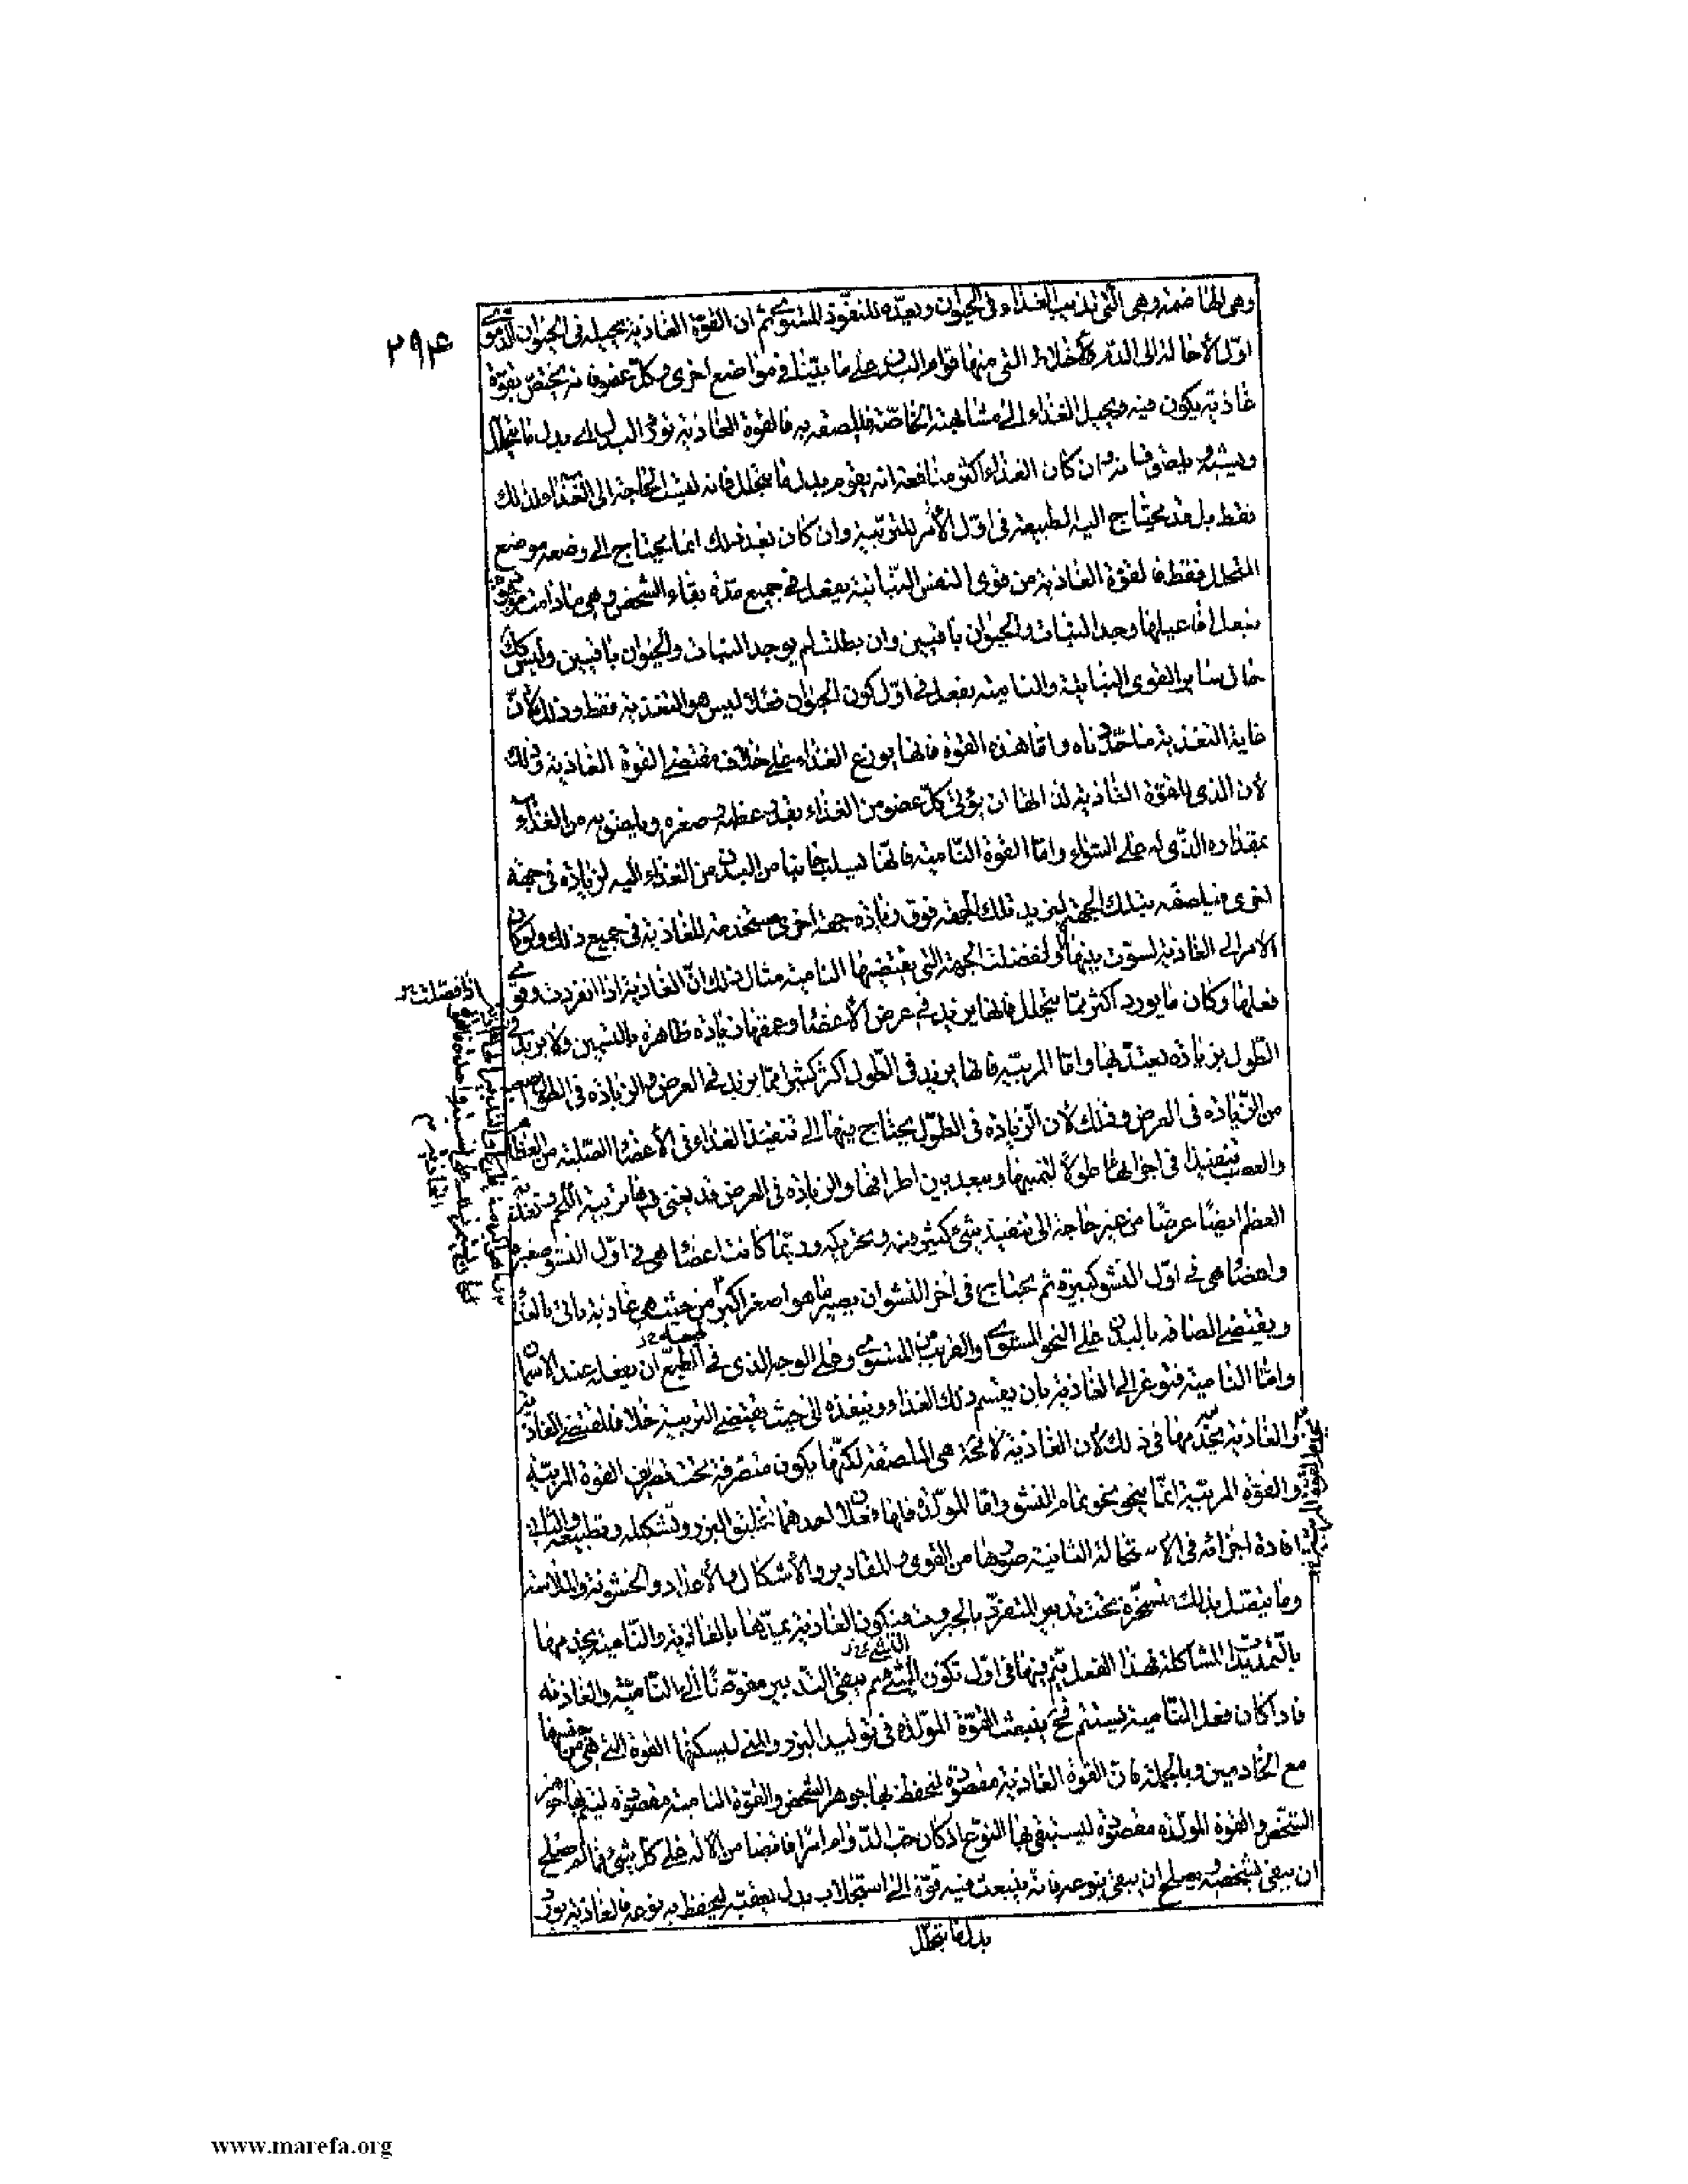 ٢٩۴
وهى الهاضمة وهى التى تذيب الغذاء فى الحيوان وتعدّه للنفوذ المستوى ثم ان القوة الغاذية تحيله فى الحيوان الدموى
اوّل الأحالة الى الدم والأخلاط التى منها قوام البدن على ما بيّنا فى مواضع أخرى وكلّ عضو فانه يختصّ بقوة
غاذية يكون فيه ويحيل الغذاء الى مشابهته الخاصّة فيلصقه به فالقوة الغاذية تورد البدل اى بدل ما يتحلّل
ويشبّه ويلصق فانه وان كان الغذاء اكثر منافعه انه يقوم بدل ما يتحلل فانه ليست الحاجة الى الغذاء لذلك
فقط بل قد يحتاج اليه الطبيعة فى اوّل الأمر للتربية وان كان بعد ذلك انما يحتاج الى وضعه موضع
المتحلل فقط فالقوة الغاذية من قوى النفس النباتية يفعل فى جميع مدّة بقاء الشخص وهى ما دامت موجودة
تفعل افاعيلها وجد النبات والحيوان باقيين وان بطلت لم يوجد النبات والحيوان باقيين وليس كك
حال ساير القوى النباتية والنامية يفعل فى اوّل كون الحيوان فعلا ليس هو التغذية فقط وذلك لأنّ
غاية التغذية ما حدّدناه واما هذه القوة فانها يوزع الغذاء على خلاف مقتضى القوة الغاذية وذلك
لأن الذى للقوة الغاذية لذاتها ان يؤتى كلّ عضو من الغذاء بقدر عظمه وصغره ويلصق به من الغذاء
بمقداره الذى له على السّواء واما القوة النّامية فانّها تسلب جانبا من البدن من الغذاء اليه لزيادة فى جهة
اخرى فيلصقه بتلك الجهة ليزيد تلك الجهة فوق زيادة جهة اخرى مستخدمة للغاذية فى جميع ذلك ولو كان
الامر الى الغاذية لسوّت بينها او لفضلت الجهة التى يقتضيها النامية مثال ذلك انّ الغاذية اذا انفردت وقوى
فعلها وكان ما يورد اكثر مما يتحلل فانها يزيد فى عرض الأعضاء وعمقها زيادة ظاهرة بالتسمين ولا يزيد فى
الطول زيادة يعتدّ بها واما المربّية فانها يزيد فى الطول اكثر كثيرا مما يزيد فى العرض والزيادة فى الطول اصعب
من الزيادة فى العرض وذلك لأن الزيادة فى الطول يحتاج فيها الى تنفيذ الغذاء فى الأعضاء الصّلبة من العظام
والعصب تنفيذا فى اجزائها طولا لتنميها وتبعد بين اطرافها والزيادة فى العرض قد يغنى فيها تربية اللحم وتغذية
العظم ايضا عرضا من غير حاجة الى تنفيذ شئ كثير منه وتحريكه وربّما كانت اعضاء هى فى اوّل النشو صغيرة
واعضاء هى فى اوّل النشو كبيرة ثم يحتاج فى اخر النشو ان يصير ما هو اصغر اكبر من حيث هى غاذية يأتى بالغذاء
ويقتضى الصاقه بالبدن على النحو المستوى او القريب من المستوى وعلى الوجه الذى فى الطبع ان يفعله عند الاسمان
واما النامية فتوعز الى الغاذية بان يقسم ذلك الغذاء وينفذه الى حيث يقتضى التربية خلافا لمقتضى الغاذية
والغاذية يخدمها فى ذلك لأن الغاذية لا محة هى الملصقة لكنّها يكون متصرفة تحت تصريف القوة المربّية
والقوة المربّية انما ينحو نحو تمام النشو واما المولّدة فانها فعلان احدهما تخليق البزر وتشكيله وتطبيعه والثانى
افادة اجزائه فى الاستحالة الثانية صورها من القوى والمقادير والأشكال والأعداد والخشونة والملاسة
وما يتصل بذلك متسخّرة تحت تدبير المتفرّد بالجبروت فيكون الغاذية يمدّها بالغذاء والنّامية يخدمها
بالتمديدات المشاكلة فهذا الفعل يتم منها فى اول تكون الشئ ثم يبقى التدبير مفوّضا الى النّامية والغاذية
فاذا كان فعل النّامية يستتم فح ينبعث القوّة المولّدة فى توليد البزر والمنى ليسكنها القوة التى هى من جنسها
مع الخادمين وبالجملة فان القوة الغاذية مقصودة ليحفظ بها جوهر الشخص والقوة النامية مقصودة ليتم بها جوهر
الشخص والقوة المولّدة مقصودة ليستبقى بها النوع اذ كان حب الدوام امرا فائضا من الاله على كلّ شئ فما لم يصلح
ان يبقى بشخصه ويصلح ان يبقى بنوعه فانه ينبعث فيه قوّة الى استجلاب بدل يعقبه ليحفظ به نوعه فالغاذية تورد
بدل ما يتحلّل
www.marefa.org